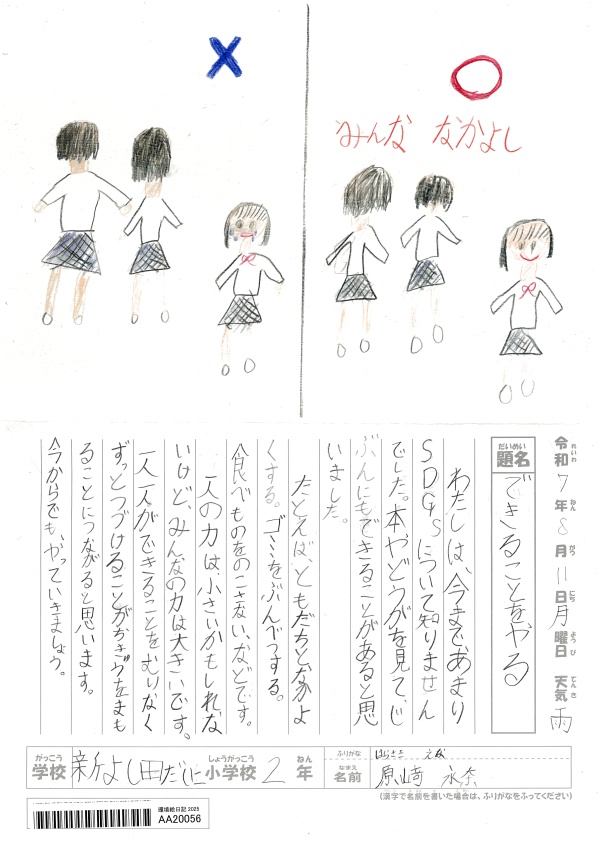 みんな なかよし
令和7年8月11日月曜日 天気 雨
れいわ ねん がつ にち ようび てんき
だいめい
題名 できることをやる
わたしは、今まであまり
SDGsについて知りません
でした。本やどうがを見て、じ
ぶんにもできることがあると思
いました。
たとえば、ともだちとなかよ
くする。ゴミをぶんべつする。
食べものをのこさない、などです。
一人の力は、小さいかもしれな
いけど、みんなの力は大きいです。
一人一人ができることをむりなく
ずっとつづけることがちきゅうをまも
ることにつながると思います。
今からでも、やっていきましょう。
がっこう しょうがっこう ねん
学校 新よし田だい二 小学校 2年
ふりがな はらさき えな
なまえ
名前 原﨑 永奈
(漢字で名前を書いた場合は、ふりがなをふってください)
環境絵日記 2025
AA20056